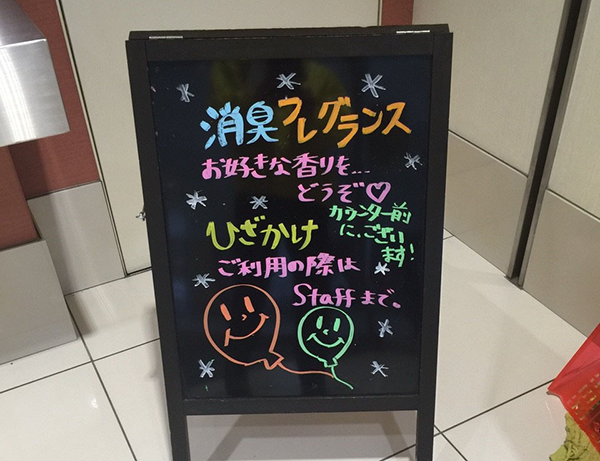 消臭フレグランス
お好きな香りを...
どうぞ♡
ひざかけ
カウンター前
に、ござい
ます!
ご利用の際は
Staffまで。